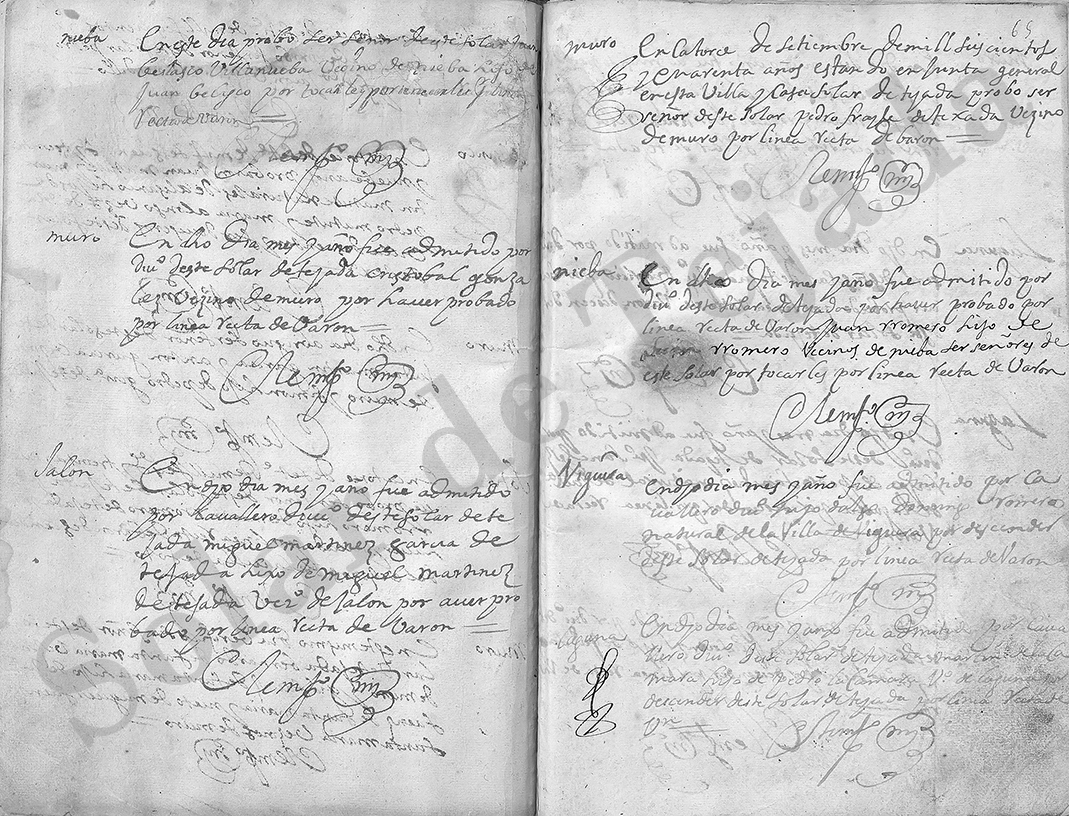 nieba
En este dia probo ser señor deste solar Juan
Velasco Villanueba Vecino de nieba hijo de
Juan Velasco por tocarles por linea
Recta de Varon
muro
En dho Dia mes y año fue admitido por
diu.º deste solar de tejada cristobal gonza
lez Vezino de muro por hauer probado
por linea recta de Varon
Jalon
En dho dia mes y año fue admitido
por cavallero diui.º deste solar de te
jada miguel martinez garcia de
tejada hijo de miguel martinez
de tejada vez.º de Jalon por auer pro
bado por linea recta de Varon
65
muro
En catorce de setiembre de mill seiscientos
y quarenta años estando en junta general
en esta Villa y Casa solar de tejada probo ser
señor deste solar pedro frayle de texada Vezino
de muro por linea recta de baron
nieba
En dho dia mes y año fue admitido por
diu.º deste solar de tejada por hauer probado por
linea recta de Varon Juan rromero hijo de
rromero Vecinos de nieba ser señores de
este solar por tocarles por linea recta de Varon
Viguera
En dho dia mes y año fue admitido por ca
uallero diu.º hijo dalgo rromero
natural de la Villa de Viguera por descender
deste solar de tejada por linea recta de Varon
laguna
En dho dia mes y año fue admitido por caua
llero diu.º deste solar de tejada martin de la ca
mara hijo de Pedro la Camara V.º de laguna por
descender deste solar de tejada por linea recta de
Vn
Solar de Tejada